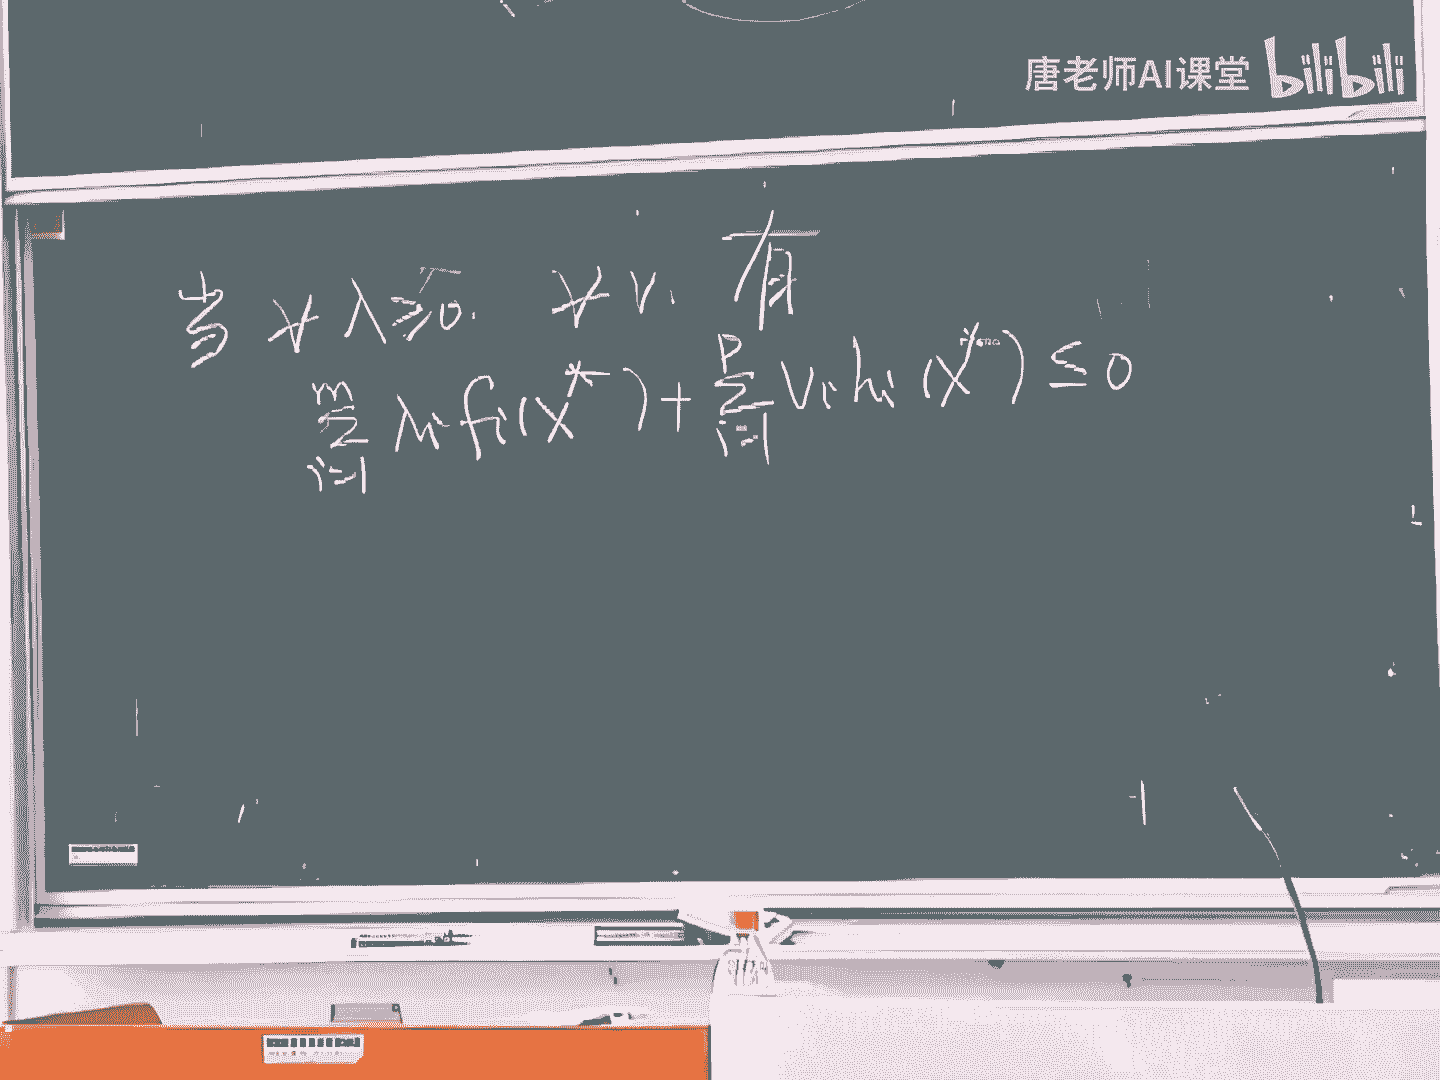 唐老师AI课堂 bilibili
当 ∀ λ≥0. ∀ v. 有
m ∑ i=1 λi fi(x*) + p ∑ i=1 vi hi(x*) ≤ 0